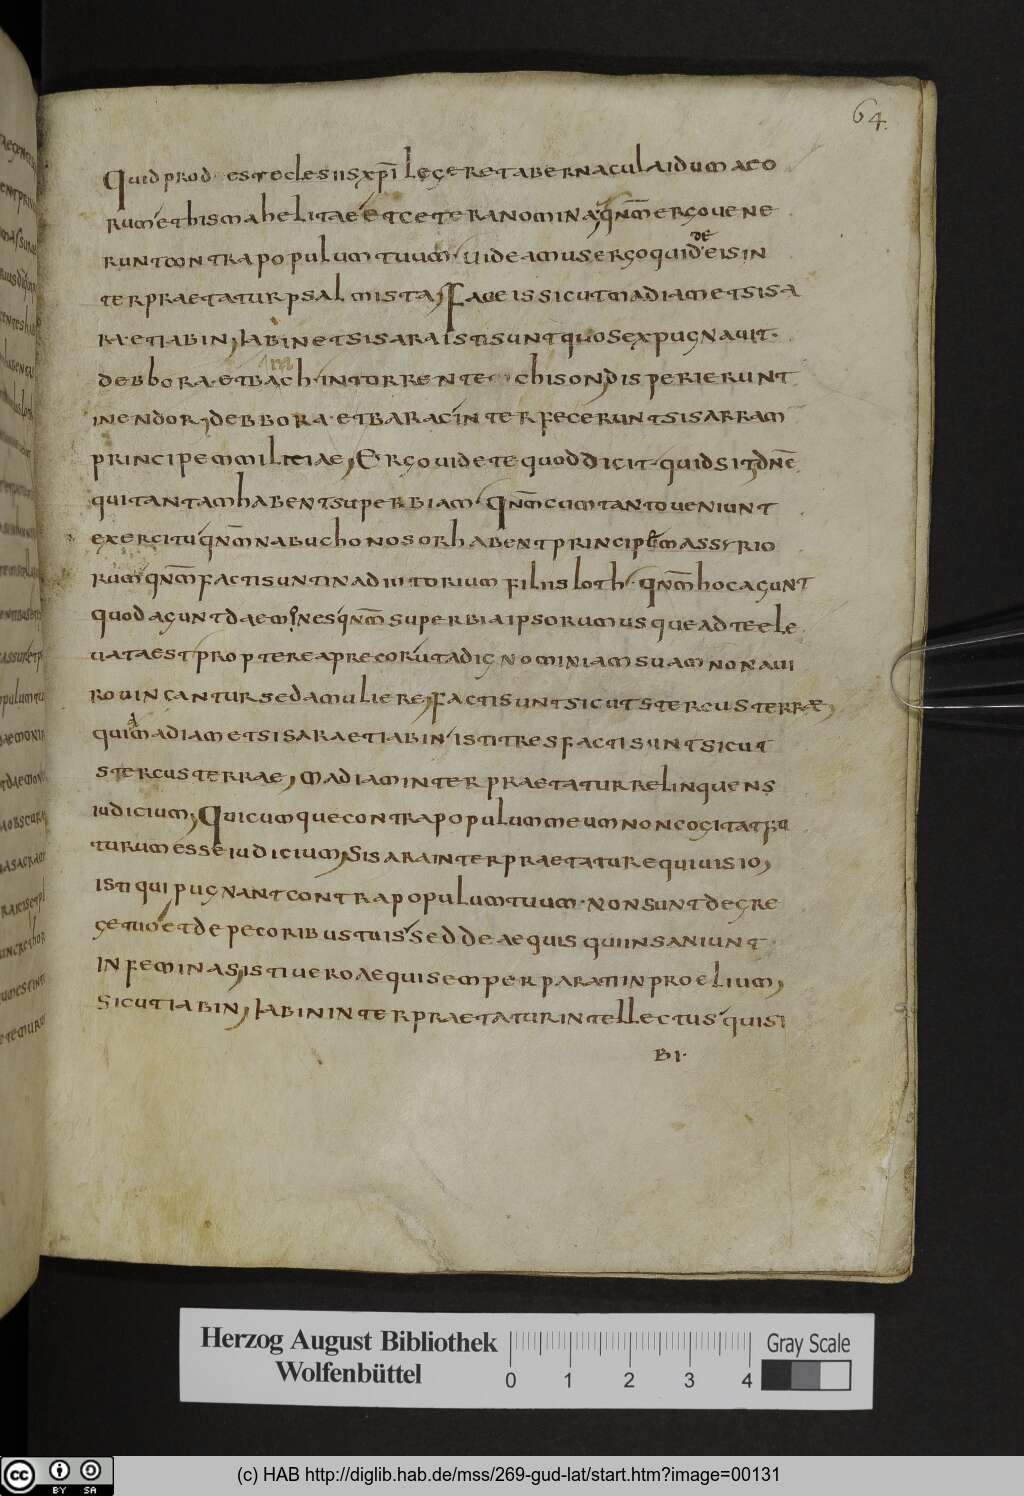 64.
quid prod est eclesiis xpi legere tabernacula idumaeo
rum et hismahelitae et cetera nomina, qnm ergo uene
runt contra populum tuum uideamus ergo quid de eis in
terpraetatur psalmista, Fac eis sicut madiam et sisa
ra et iabin, Iabin et sisara isti sunt quos expugnauit
debbora et barach in torrente chison, disperierunt
in endor, debbora et barac interfecerunt sisarram
principem miliciae, Ergo uidete quod dicit quid sit, dne
qui tantam habent superbiam qnm cum tanto ueniunt
exercitu qnm nabuchonosor habent principem assyrio
rum qnm facti sunt in adiutorium filiis loth qnm hoc agunt
quod agunt daemones qnm superbia ipsorum usque ad te ele
uata est propterea precor ut ad ignominiam suam non a ui
ro uincantur sed a muliere, facti sunt sicut stercus terrae,
quia madiam et sisara et iabin isti tres facti sunt sicut
stercus terrae, madiam interpraetatur relinquens
iudicium, Quicumque contra populum meum non cogitat fu
turum esse iudicium, Sisara interpraetatur equi uisio,
isti qui pugnant contra populum tuum non sunt de gre
ge tuo et de pecoribus tuis sed de aequis qui insaniunt
in feminas, isti uero aequi semper parati in proelium,
sicut iabin, Iabin interpraetatur intellectus qui si
bi
Herzog August Bibliothek
Wolfenbüttel
0 1 2 3 4
Gray Scale
cc BY SA
(c) HAB http://diglib.hab.de/mss/269-gud-lat/start.htm?image=00131